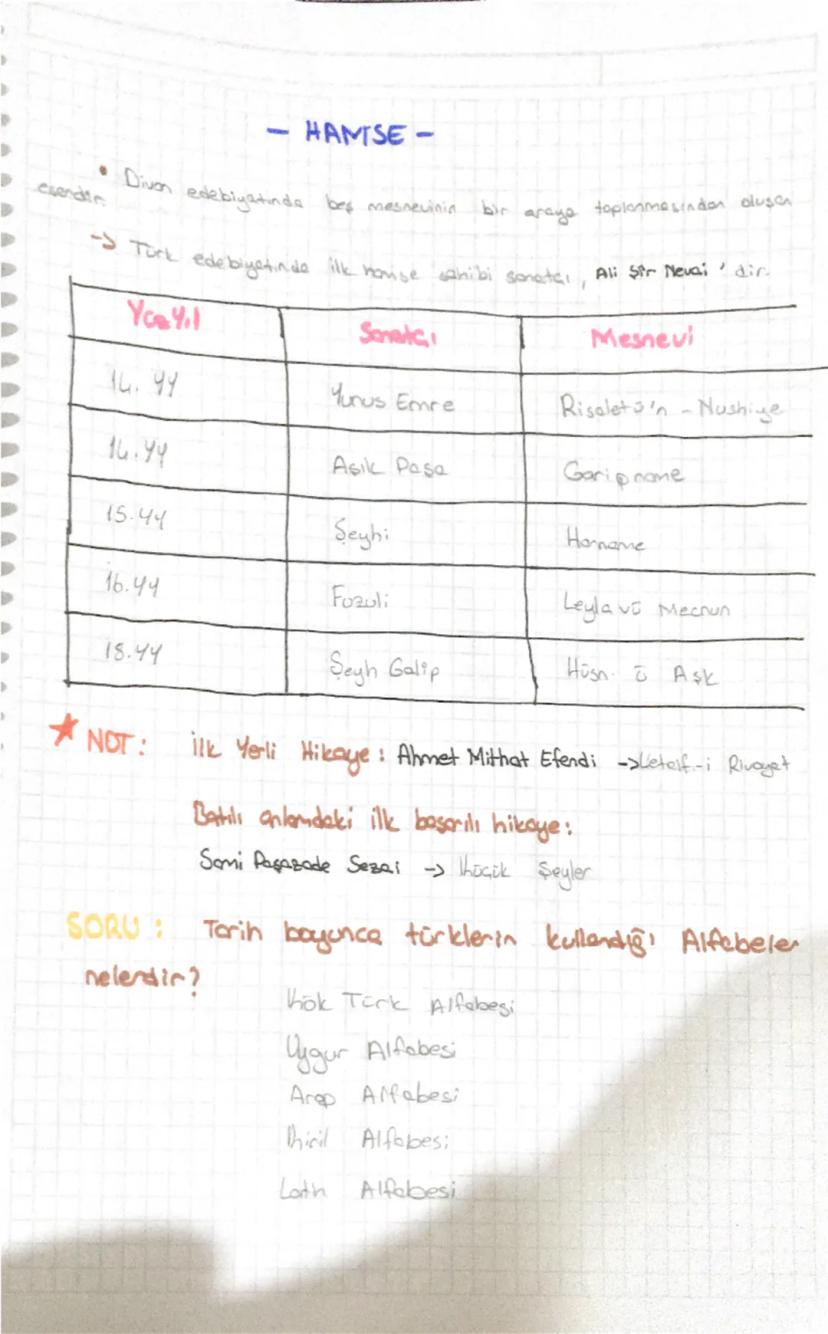 - HAMSE -
• Divan edebiyatında beş mesnevinin bir araya toplanmasından oluşan
eserdir.
-> Türk edebiyatında ilk hamse sahibi sanatçı, Ali Şir Nevai'dir.
Yüzyıl Sanatçı Mesnevi
14. yy Yunus Emre Risaletü'n - Nushiye
14. yy Aşık Paşa Garipname
15. yy Şeyhi Harname
16. yy Fuzuli Leyla vü Mecnun
18. yy Şeyh Galip Hüsn. ü Aşk
★ NOT: İlk Yerli Hikaye: Ahmet Mithat Efendi -> Letaif-i Rivayet
Batılı anlamdaki ilk başarılı hikaye:
Sami Paşazade Sezai -> Küçük Şeyler
SORU: Tarih boyunca türklerin kullandığı Alfabeler
nelerdir?
Kök Türk Alfabesi
Uygur Alfabesi
Arap Alfabesi
Kiril Alfabesi
Latin Alfabesi